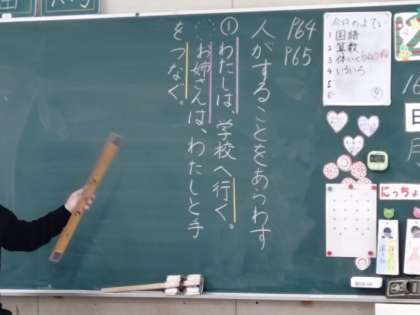 P64
P65
人がすることをあらわす
①わたしは、学校へ行く。
お姉さんは、わたしと手
をつなぐ。
今日のよてい
1 国語
2 算数
3
4
5
6
にっちょ